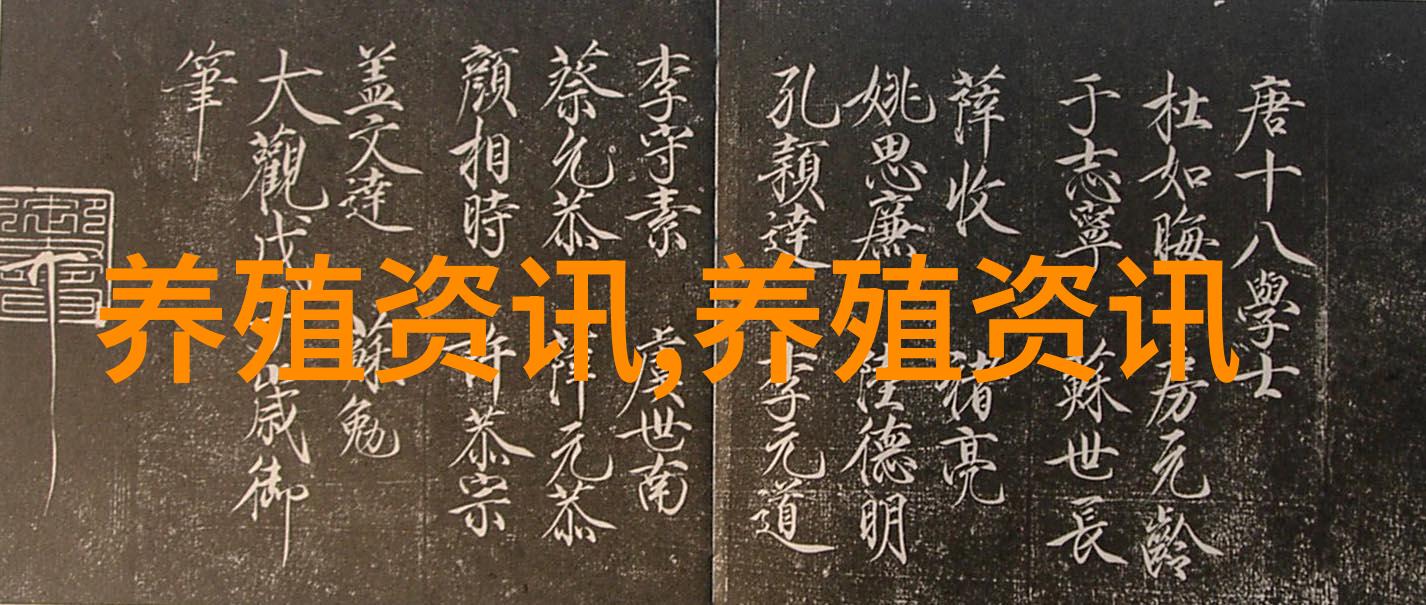 唐十八學士
杜如晦 房元齡
于志寧 蘇世長
薛收 褚亮
姚思廉 陸德明
孔穎達 李元道
李守素 虞世南
蔡允恭 薛元恭
顏相時 許恭宗
盖文達 蘇勉
大觀戊歲御
筆
养殖资讯,养殖资讯